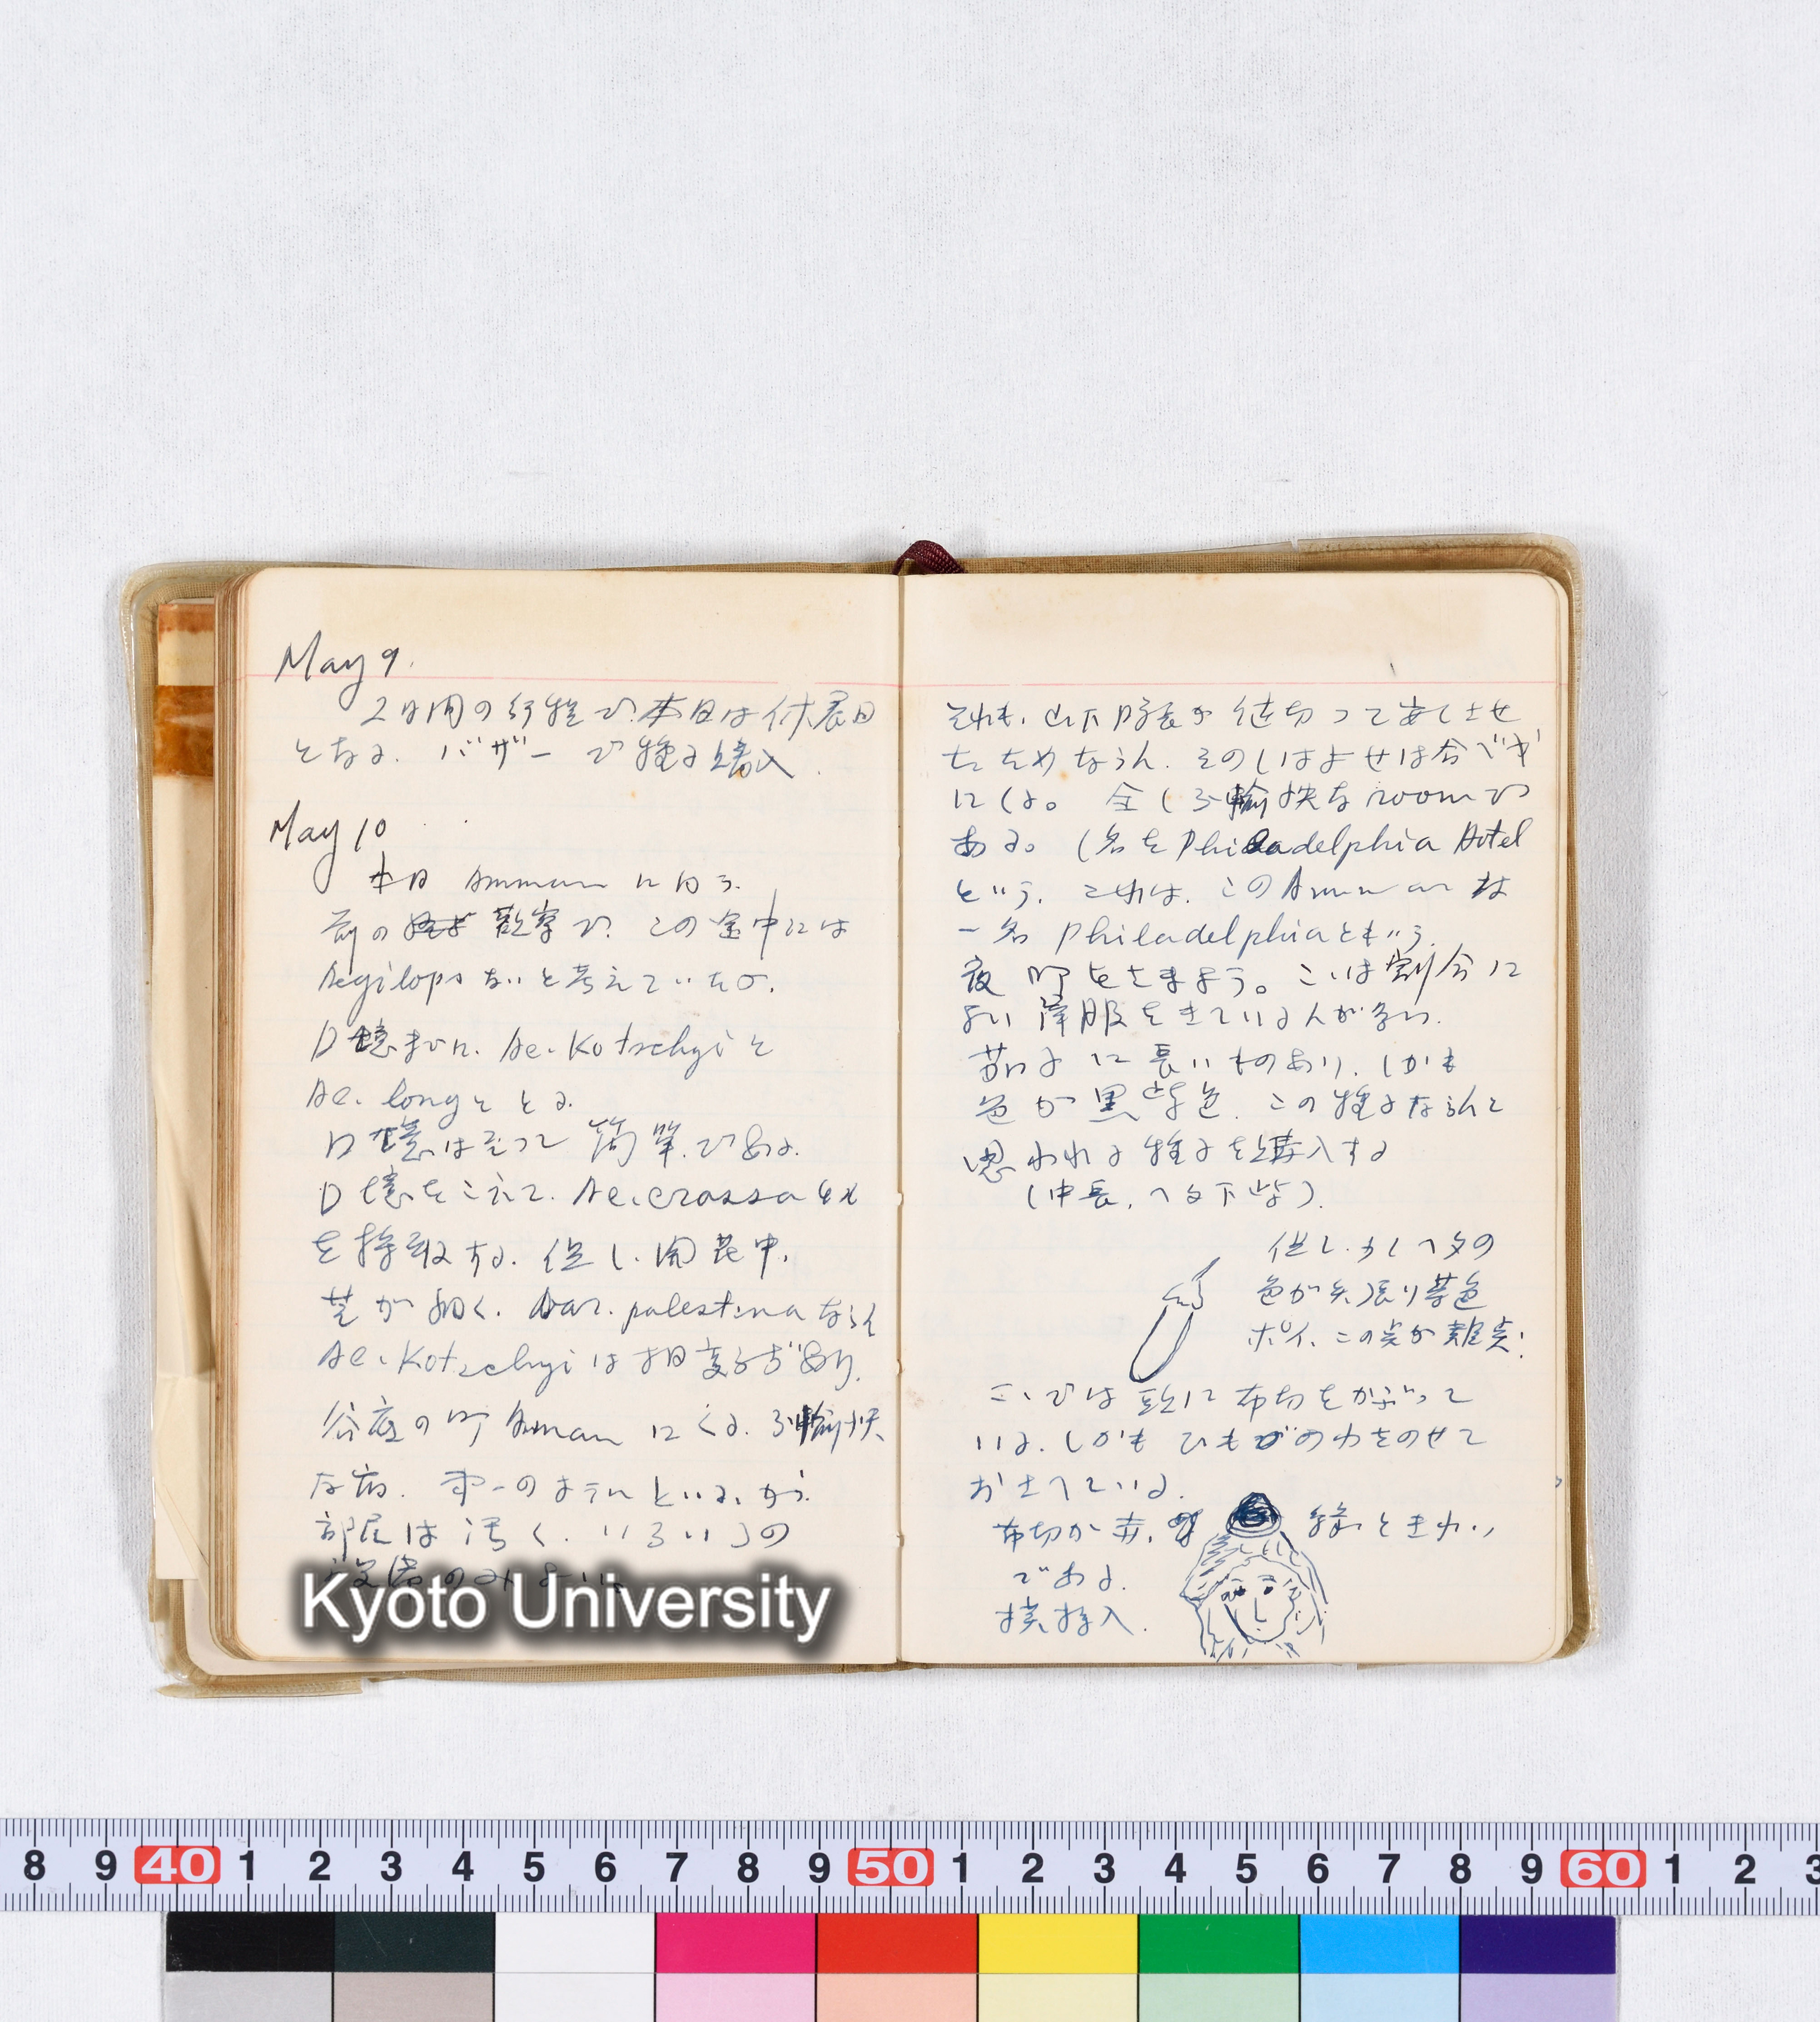 May 9.
2日間の行程で.本日は休養日
となる. バザーで種子購入.
May 10
本日 Amman に向う.
前の 観察で. この途中には
Aegilops ないと考えていたが.
Ae. Kotschyi と
Ae. long と とる.
は至って 簡単である.
をこえて. Ae. crassa 4x
を採取する. 但し. 開花中.
芒が細く. var. palestina ならん
Ae. Kotschyi は相変らずあり.
谷底の町 Amman にくる. 不愉快
な宿. 第一のホテルというが.
部屋は汚く. いろいろの
設備のみ
それも. 山下隊長が 値切って安くさせ
たためならん. そのしはよせは合べや
にくる。 全く不愉快な room で
ある。 (名を Philadelphia Hotel
という. これは. この Amman は
一名 Philadelphia ともいう.
夜 町をさまよう。こゝは割合に
よい洋服をきている人が多い.
茄子に長いものあり. しかも
色が黒紫色. この種子ならんと
思われる種子を購入する
(中長. ヘタ下紫).
但し. 少しヘタの
色が矢張り茶色
ポイ. この点が難点!
こゝでは 頭に布切をかぶって
いる. しかも ひもの わをのせて
おさへている.
布切が赤. 緑ときれい
である.
挿入.
Kyoto University
8 9 40 1 2 3 4 5 6 7 8 9 50 1 2 3 4 5 6 7 8 9 60 1 2 3